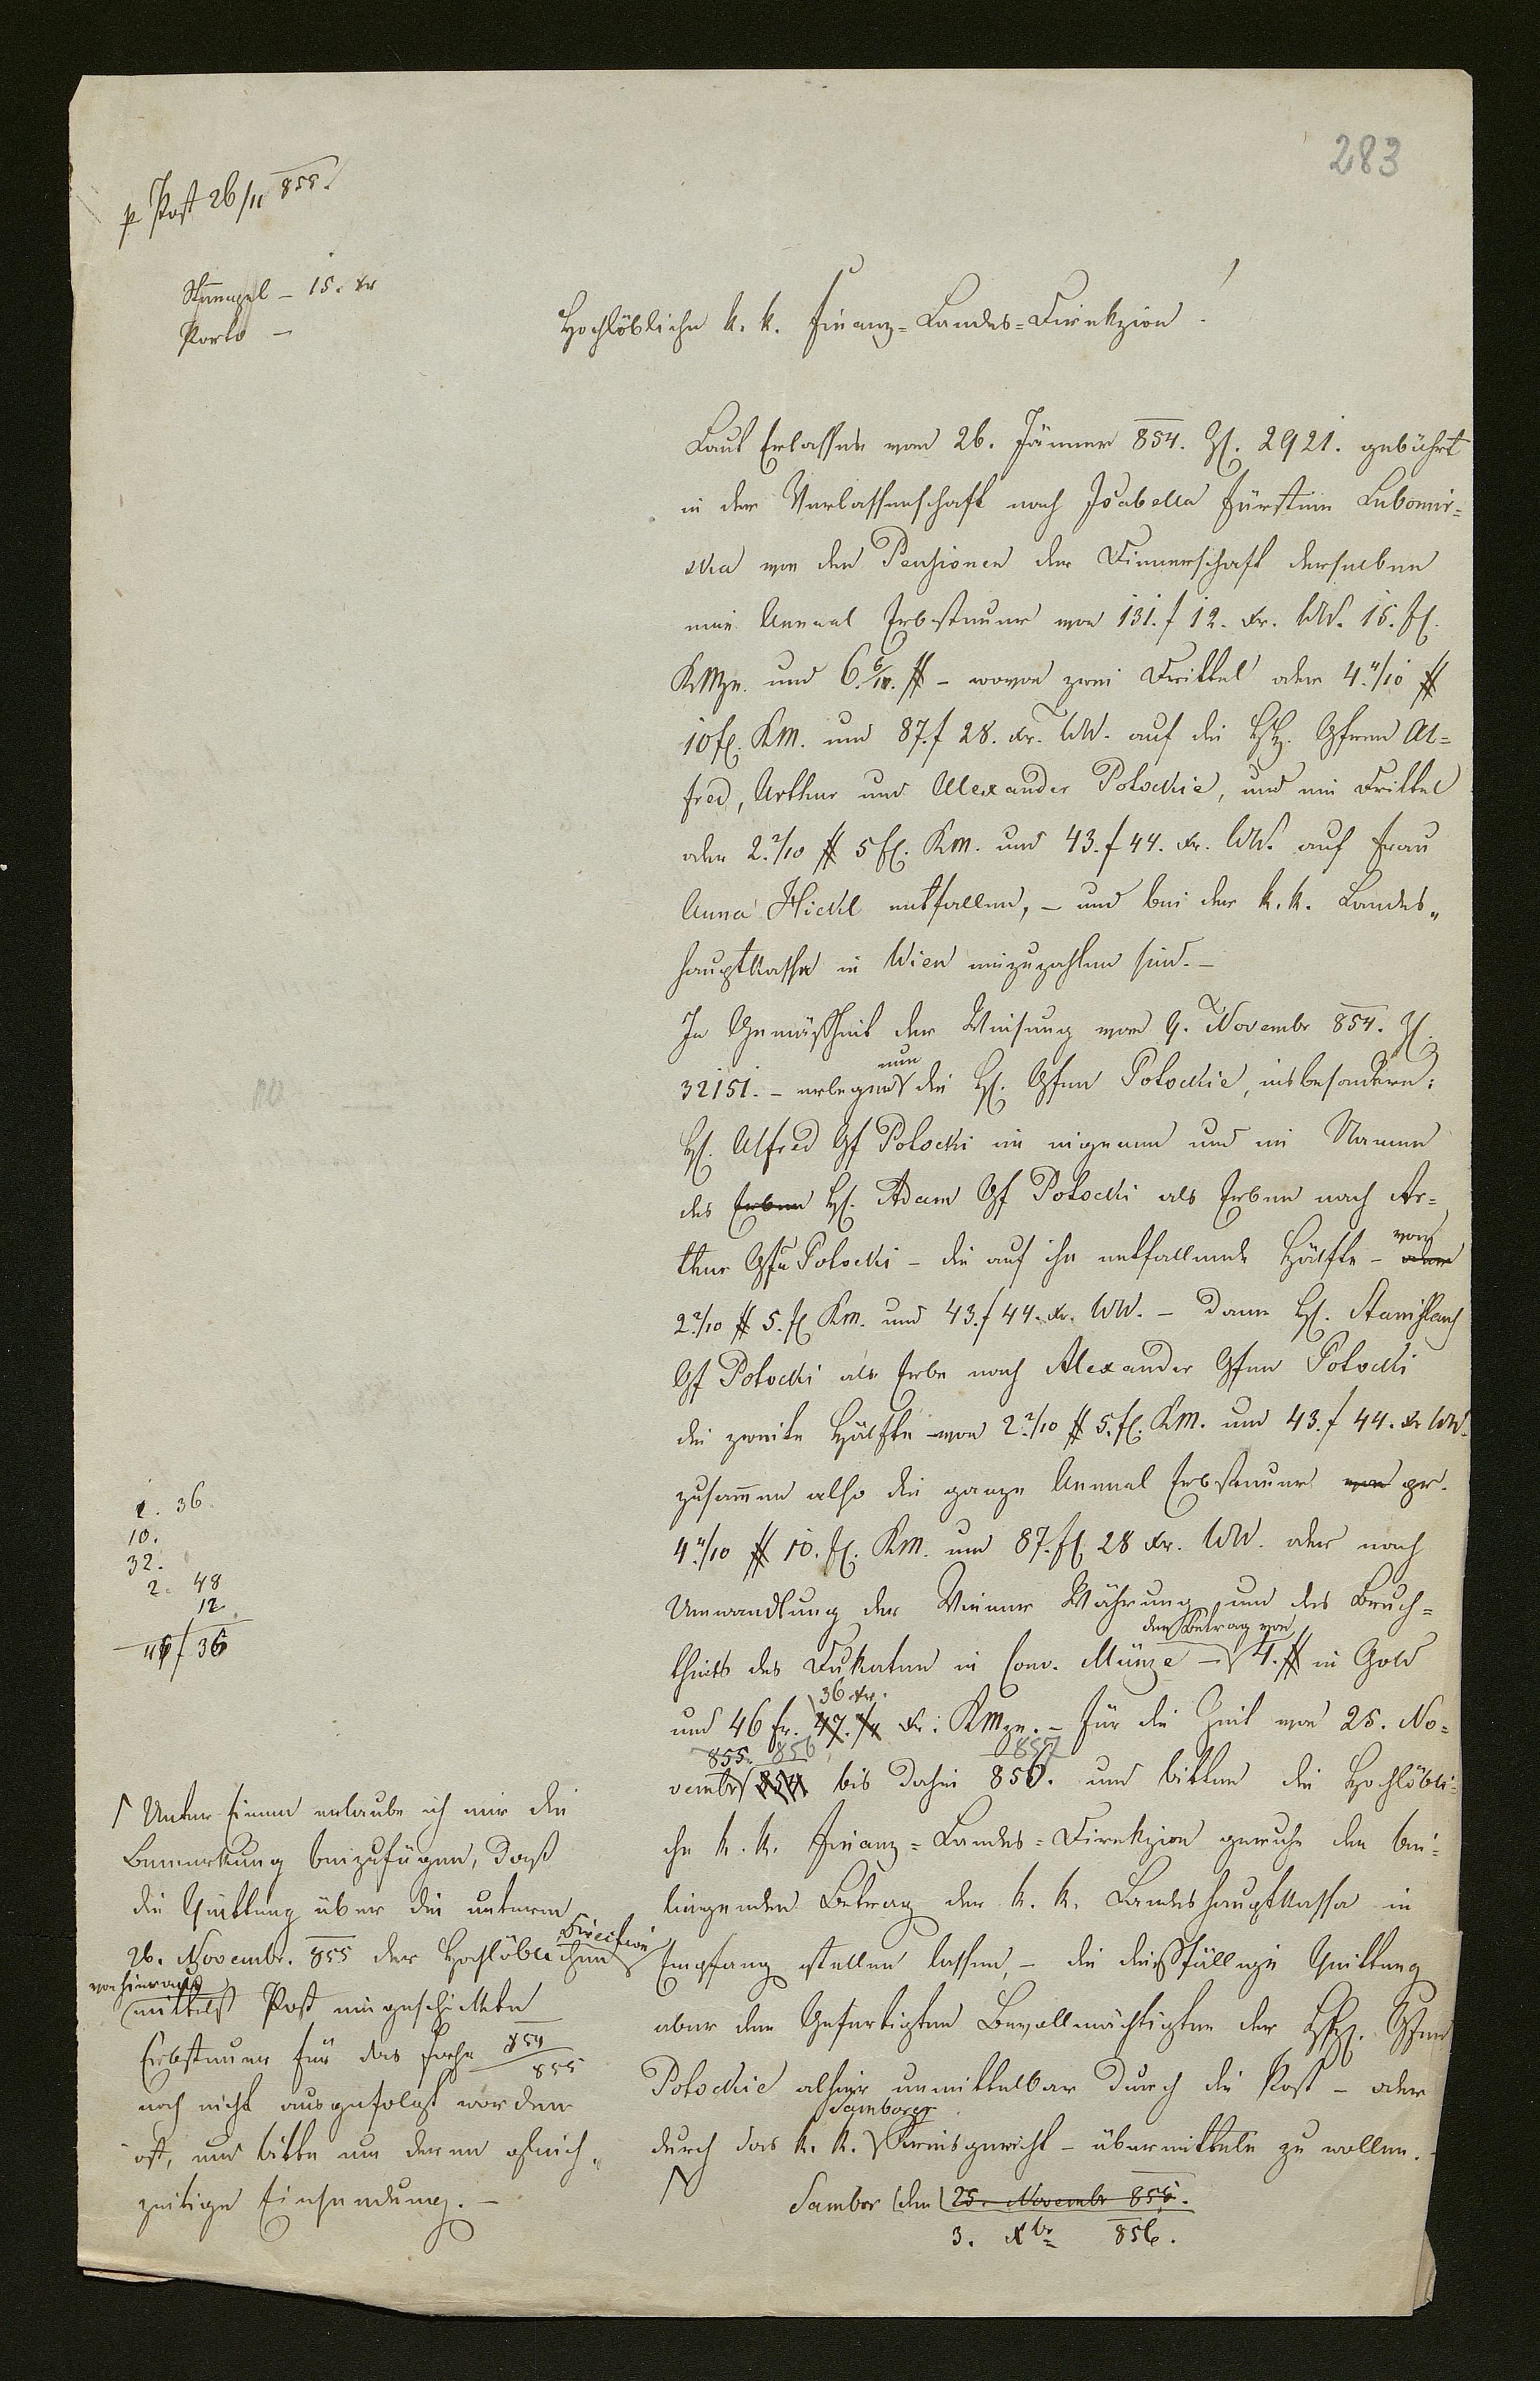 283
p Post 26/11 855.
Stempel – 15. xr
Porto –
Hochlöbliche k. k. Finanz-Landes-Direkzion!
Laut Erlasses vom 26. Jänner 854. Zl. 2921. gebührt
in der Verlassenschaft nach Isabella Fürstinn Lubomir=
ska von den Pensionen der Dienerschaft derselben
eine Annual Erbsteuer von 131. f 12. xr. WW. 15. fl.
KMze. und 6. 6/10. # – wovon zwei Drittel oder 4. 4/10 #
10 fl. KM. und 87. f 28. xr. WW. auf die HH. Gfen Al=
fred, Arthur und Alexander Potockie, und ein Drittel
oder 2. 2/10 # 5 fl. KM. und 43. f 44. xr. WW. auf Frau
Anna Hickl entfallen, – und bei der k. k. Landes„
hauptkasse in Wien einzuzahlen sind. –
In Gemäßheit der Weisung vom 9. Novembr 854. Zl.
nun
32151. – erlegen die H. Gfen Potockie, insbesondere:
H. Alfred Gf Potocki im eigenen und im Namen
des Erben H. Adam Gf Potocki als Erben nach Ar=
thur Gfn Potocki – die auf ihn entfallende Hälfte – oder von
2. 2/10 # 5. fl Km. und 43. f 44. xr. WW. – dann H. Stanislaus
Gf Potocki als Erbe nach Alexander Gfen Potocki
die zweite Hälfte von 2. 2/10 # 5. fl. KM. und 43. f 44. xr WW.
zusammen also die ganze Annual Erbsteuer von pr.
4. 4/10 # 10. fl. KM. und 87. fl 28 xr. WW. oder nach
Umwandlung der Wiener Währung und des Bruch=
den Betrag von
theils des Dukaten in Conv. Münze – 4. # in Gold
36 xr.
und 46 fr. 47. /4 xr: KMze. – für die Zeit vom 25. No=
855. 856 857
vembr 854 bis dahin 856. und bitten die Hochlöbli=
che k. k. Finanz-Landes-Direkzion geruhe den bei=
liegenden Betrag der k. k. Landeshauptkassa in
Empfang stellen lassen, – die diesfällige Quittung
aber dem Gefertigten Bevollmächtigten der HH. Gfen
Potockie alhier unmittelbar durch die Post – oder
Samborer
durch das k. k. Kreisgericht – übermitteln zu wollen. –
Sambor den 25. Novembr 855.
3. Xbr 856.
1. 36
10.
32.
2. 48
12.
46 f 36
Unter Einem erlaube ich mir die
Bemerkung beizufügen, daß
die Quittung über die unterm
26. Novembr. 855 der Hochlöblichen Direction
von hieraus
mittelst Post eingeschickte
Erbsteuer für das Jahr 854/855
noch nicht ausgefolgt worden
ist, und bitte um deren gleich„
zeitige Einsendung. –